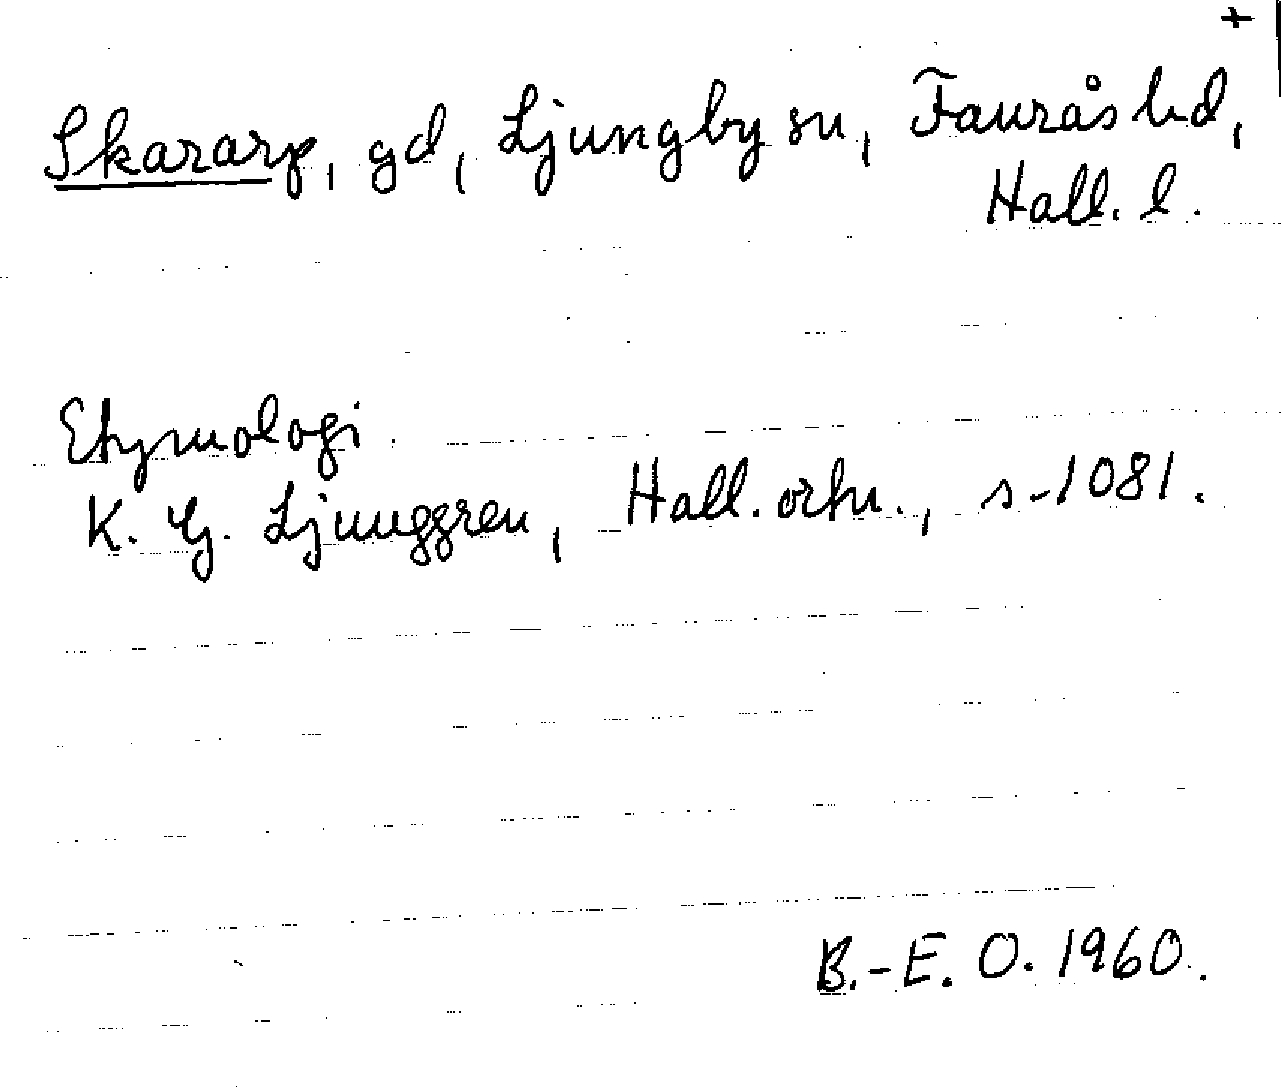 +
Skararp, gd, Ljungby sn, Faurås hd,
Hall. l.
Etymologi
K. G. Ljunggren, Hall. ortn., s. 1081.
B.-E. O. 1960.